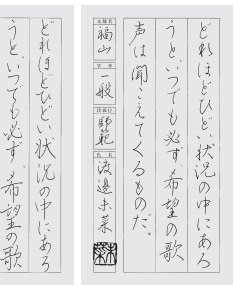 どれほどひどい状況の中にあろ
うと、いつでも必ず希望の歌
声は聞こえてくるものだ。
支部名 福山 学年 一般 段級位 師範 氏名 渡邊未菜
どれほどひどい状況の中にあろ
うと、いつでも必ず、希望の歌